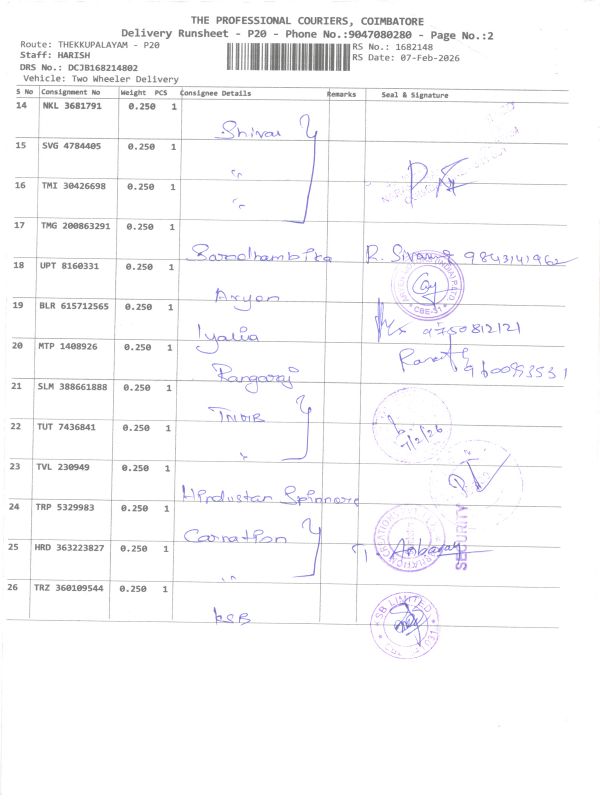 THE PROFESSIONAL COURIERS, COIMBATORE
Delivery Runsheet - P20 - Phone No.:9047080280 - Page No.:2
Route: THEKKUPALAYAM - P20
Staff: HARISH
DRS No.: DCJB168214802
Vehicle: Two Wheeler Delivery
RS No.: 1682148
RS Date: 07-Feb-2026
S No Consignment No Weight PCS Consignee Details Remarks Seal & Signature
14 NKL 3681791 0.250 1
15 SVG 4784405 0.250 1
16 TMI 30426698 0.250 1
17 TMG 200863291 0.250 1
R. Sivam 9843141962
18 UPT 8160331 0.250 1
Aryen
CBE-31
19 BLR 615712565 0.250 1
9750812121
20 MTP 1408926 0.250 1
Rangaraj
21 SLM 388661888 0.250 1
22 TUT 7436841 0.250 1
7/2/26
23 TVL 230949 0.250 1
Hindustan Spinners
24 TRP 5329983 0.250 1
Carnation
SECURITY
25 HRD 363223827 0.250 1
26 TRZ 360109544 0.250 1
KSB
KSB LIMITED